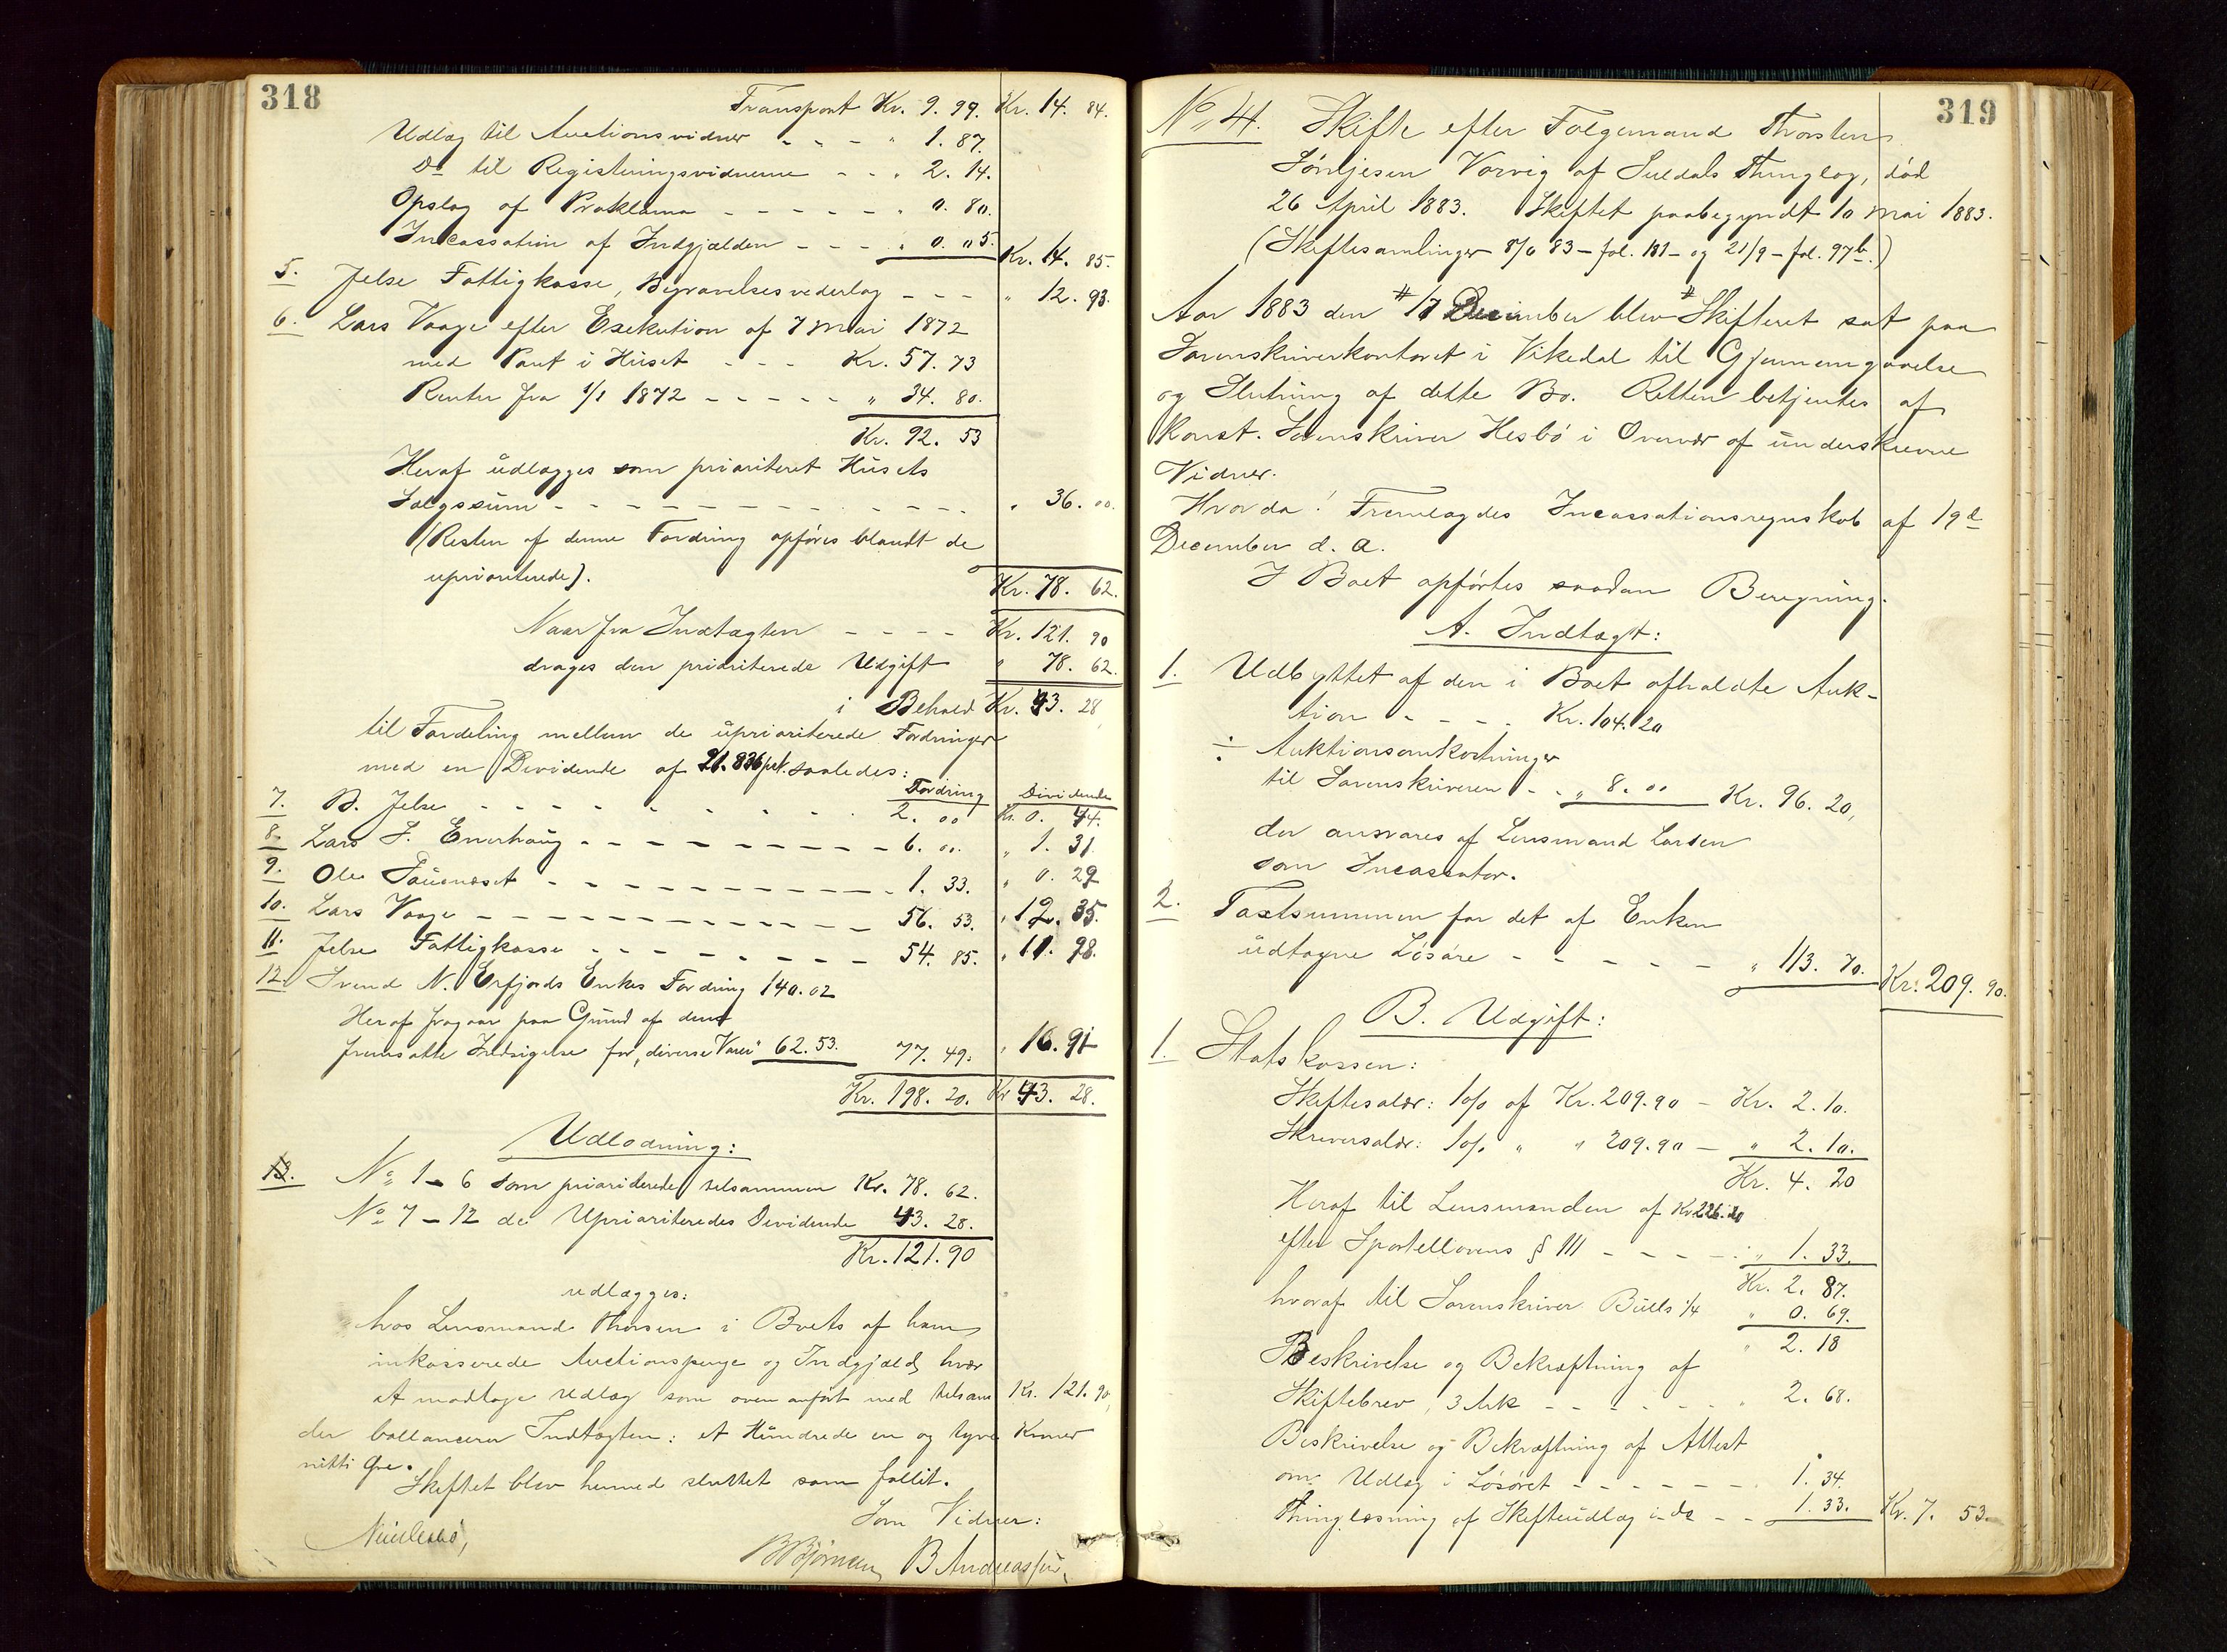 318
Transport Kr. 9. 99. Kr. 14. 84.
Udlæg til Auctionsvidner - - - " 1. 87.
Do til Registeringsvidnerne - - " 2. 14.
Opslag af Proklama - - - - - " 0. 80.
Incassation af Indgjælden - - - " 0. 05. Kr. 14. 85.
5. Jelse Fattigkasse, Begravelsesvederlag - - - " 12. 93.
6. Lars Vaage efter Exekution af 7 Mai 1872
med Pant i Huset - - - Kr. 57. 73
Renter fra 1/1 1872 - - - - - " 34. 80.
Kr. 92. 53
Heraf udlægges som prioriteret Husets
Salgssum - - - - - - - - - - - - " 36. 00.
(Resten af denne Fordring opføres blandt de
uprioriterede).
Kr. 78. 62.
Naar fra Indtægten - - - - Kr. 121. 90
drages den prioriterede Udgift " 78. 62.
i Behold Kr. 43. 28
til Fordeling mellem de uprioriterede Fordringer
med en Dividende af 21.836 pct. saaledes:
Fordring Dividende
7. B. Jelse - - - - - - - - 2. 00 Kr. 0. 44.
8. Lars J. Enerhaug - - - - - - - - - 6. 00. " 1. 31
9. Ole - - - - - - - - - - 1. 33. " 0. 29
10. Lars Vaage - - - - - - - - - - - 56. 53. " 12. 35.
11. Jelse Fattigkasse - - - - - - - - 54. 85. " 11. 98.
12. Svend N. Erfjords Enkes Fordring 140.02
Heraf fragaar paa Grund af den
fremsatte Indsigelse for "diverse Varer" 62.53. 77. 49. " 16. 91
Kr. 198. 20. Kr 43. 28.
Udlodning:
13. No 1 - 6 som prioriterede tilsammen Kr. 78. 62.
No 7 - 12 de Uprioriteredes Dividende 43. 28.
Kr. 121. 90
udlægges:
hos Lensmand Thorsen i Boets af ham
inkasserede Auctionspenge og Indgjæld, hvor
at modtage Udlæg som oven anført med tilsam Kr. 121. 90,
der ballancerer Indtægten: et Hundrede en og tyve Kroner
nitti Øre.
Skiftet blev hermed sluttet som fallit.
Som Vidner:
B Bjørnsen B Andreassen,
319
No 41. Skifte efter Følgemand Thorsten
Sønljesen Vorvig af Suldals Thinglag, død
26 April 1883. Skiftet paabegyndt 10 Mai 1883.
(Skiftesamlinger 8/6 83 - fol. 181 - og 21/9 - fol. 97b.)
Aar 1883 den 17 December blev Skifteret sat paa
Sorenskriverkontoret i Vikedal til Gjennemgaaelse
og Slutning af dette Bo. Retten betjentes af
Konst. Sorenskriver Hesbö i Overvær af underskrevne
Vidner.
Hvorda! Fremlagdes Incassationsregnskab af 19de
December d. A.
I Boet opførtes saadan Beregning.
A. Indtægt:
1. Udbyttet af den i Boet afholdte Auk-
tion - - - - Kr. 104. 20
÷ Auktionsomkostninger
til Sorenskriveren - - " 8. 00 Kr. 96. 20,
der ansvares af Lensmand Larsen
som Incassator.
2. Taxtsummen for det af Enken
udtagne Løsøre - - - - - " 113. 70. Kr. 209. 90.
B. Udgift:
1. Statskassen:
Skiftesalær: 1o/o af Kr. 209.90 - Kr. 2. 10.
Skriversalær: 1o/o " " 209.90 - " 2. 10.
Kr. 4. 20
Heraf til Lensmanden af Kr
efter Sportellovens § 111 - - - - " 1. 33.
Kr. 2. 87.
hvoraf til Sorenskriver Bulls 1/4 " 0. 69.
" 2. 18
Beskrivelse og Bekræftning af
Skiftebrev, 3 Ark - - - - - - " 2. 68.
Beskrivelse og Bekræftning af Attest
om Udlæg i Løsøret - - - - - - 1. 34.
Thinglæsning af Skifteudlæg i do - - 1. 33. Kr. 7. 53.